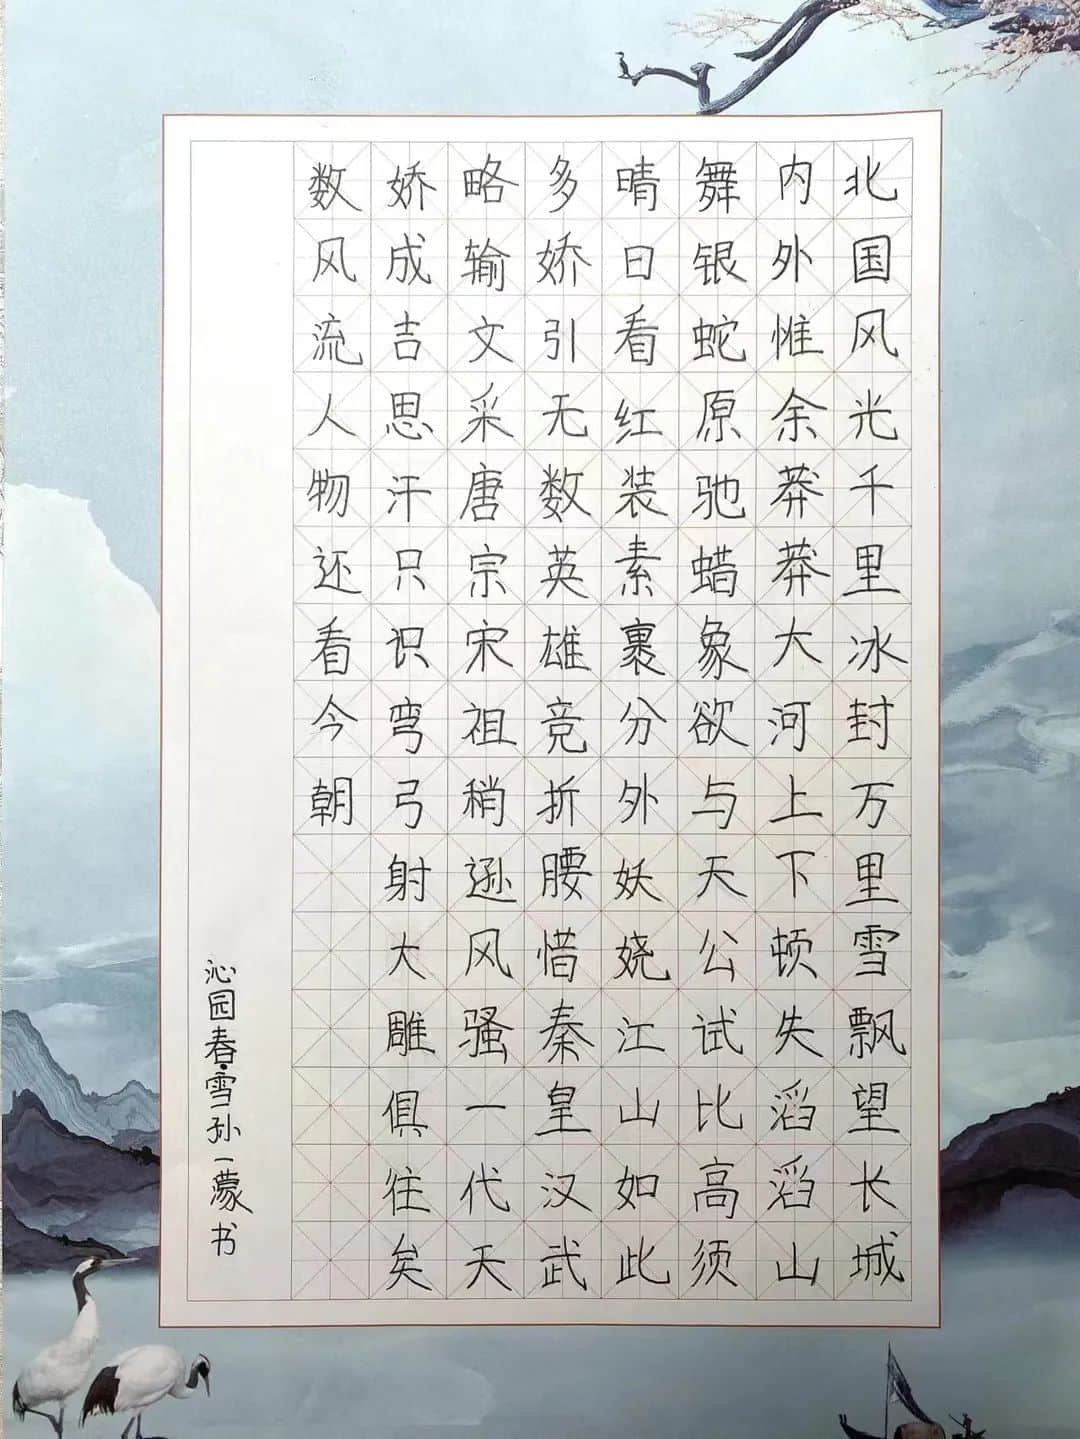 北国风光千里冰封万里雪飘望长城
内外惟余莽莽大河上下顿失滔滔山
舞银蛇原驰蜡象欲与天公试比高须
晴日看红装素裹分外妖娆江山如此
多娇引无数英雄竞折腰惜秦皇汉武
略输文采唐宗宋祖稍逊风骚一代天
娇成吉思汗只识弯弓射大雕俱往矣
数风流人物还看今朝
沁园春·雪孙一濛书